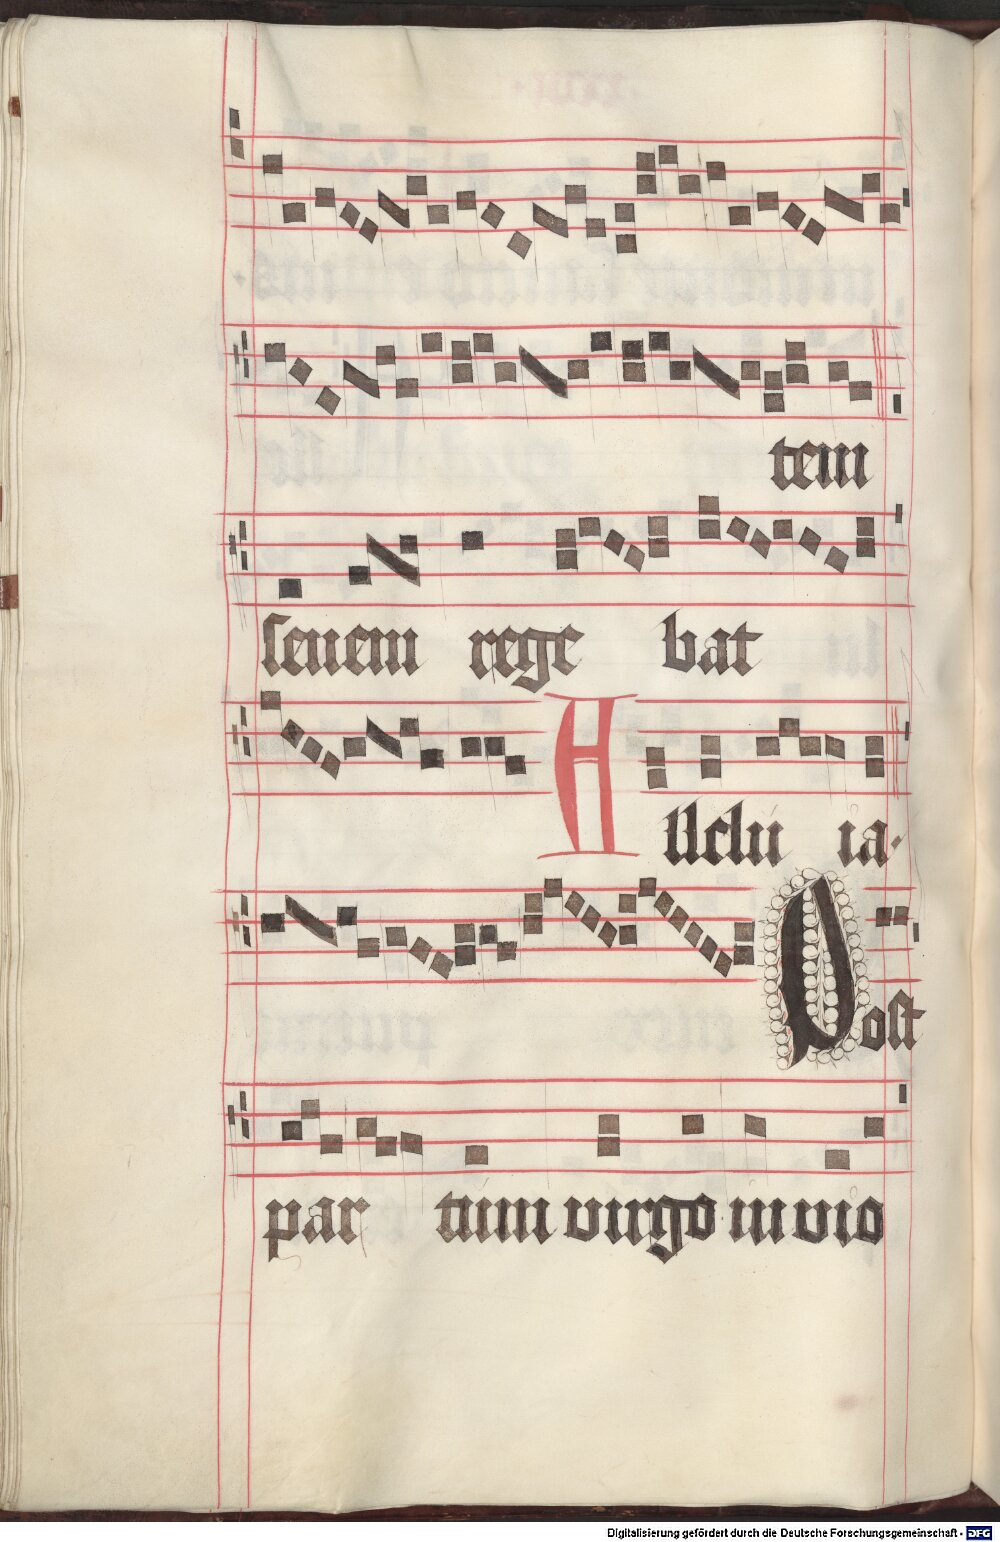 tem
senem rege bat
Alleluia.
Post
par tum virgo invio
Digitalisierung gefördert durch die Deutsche Forschungsgemeinschaft - DFG